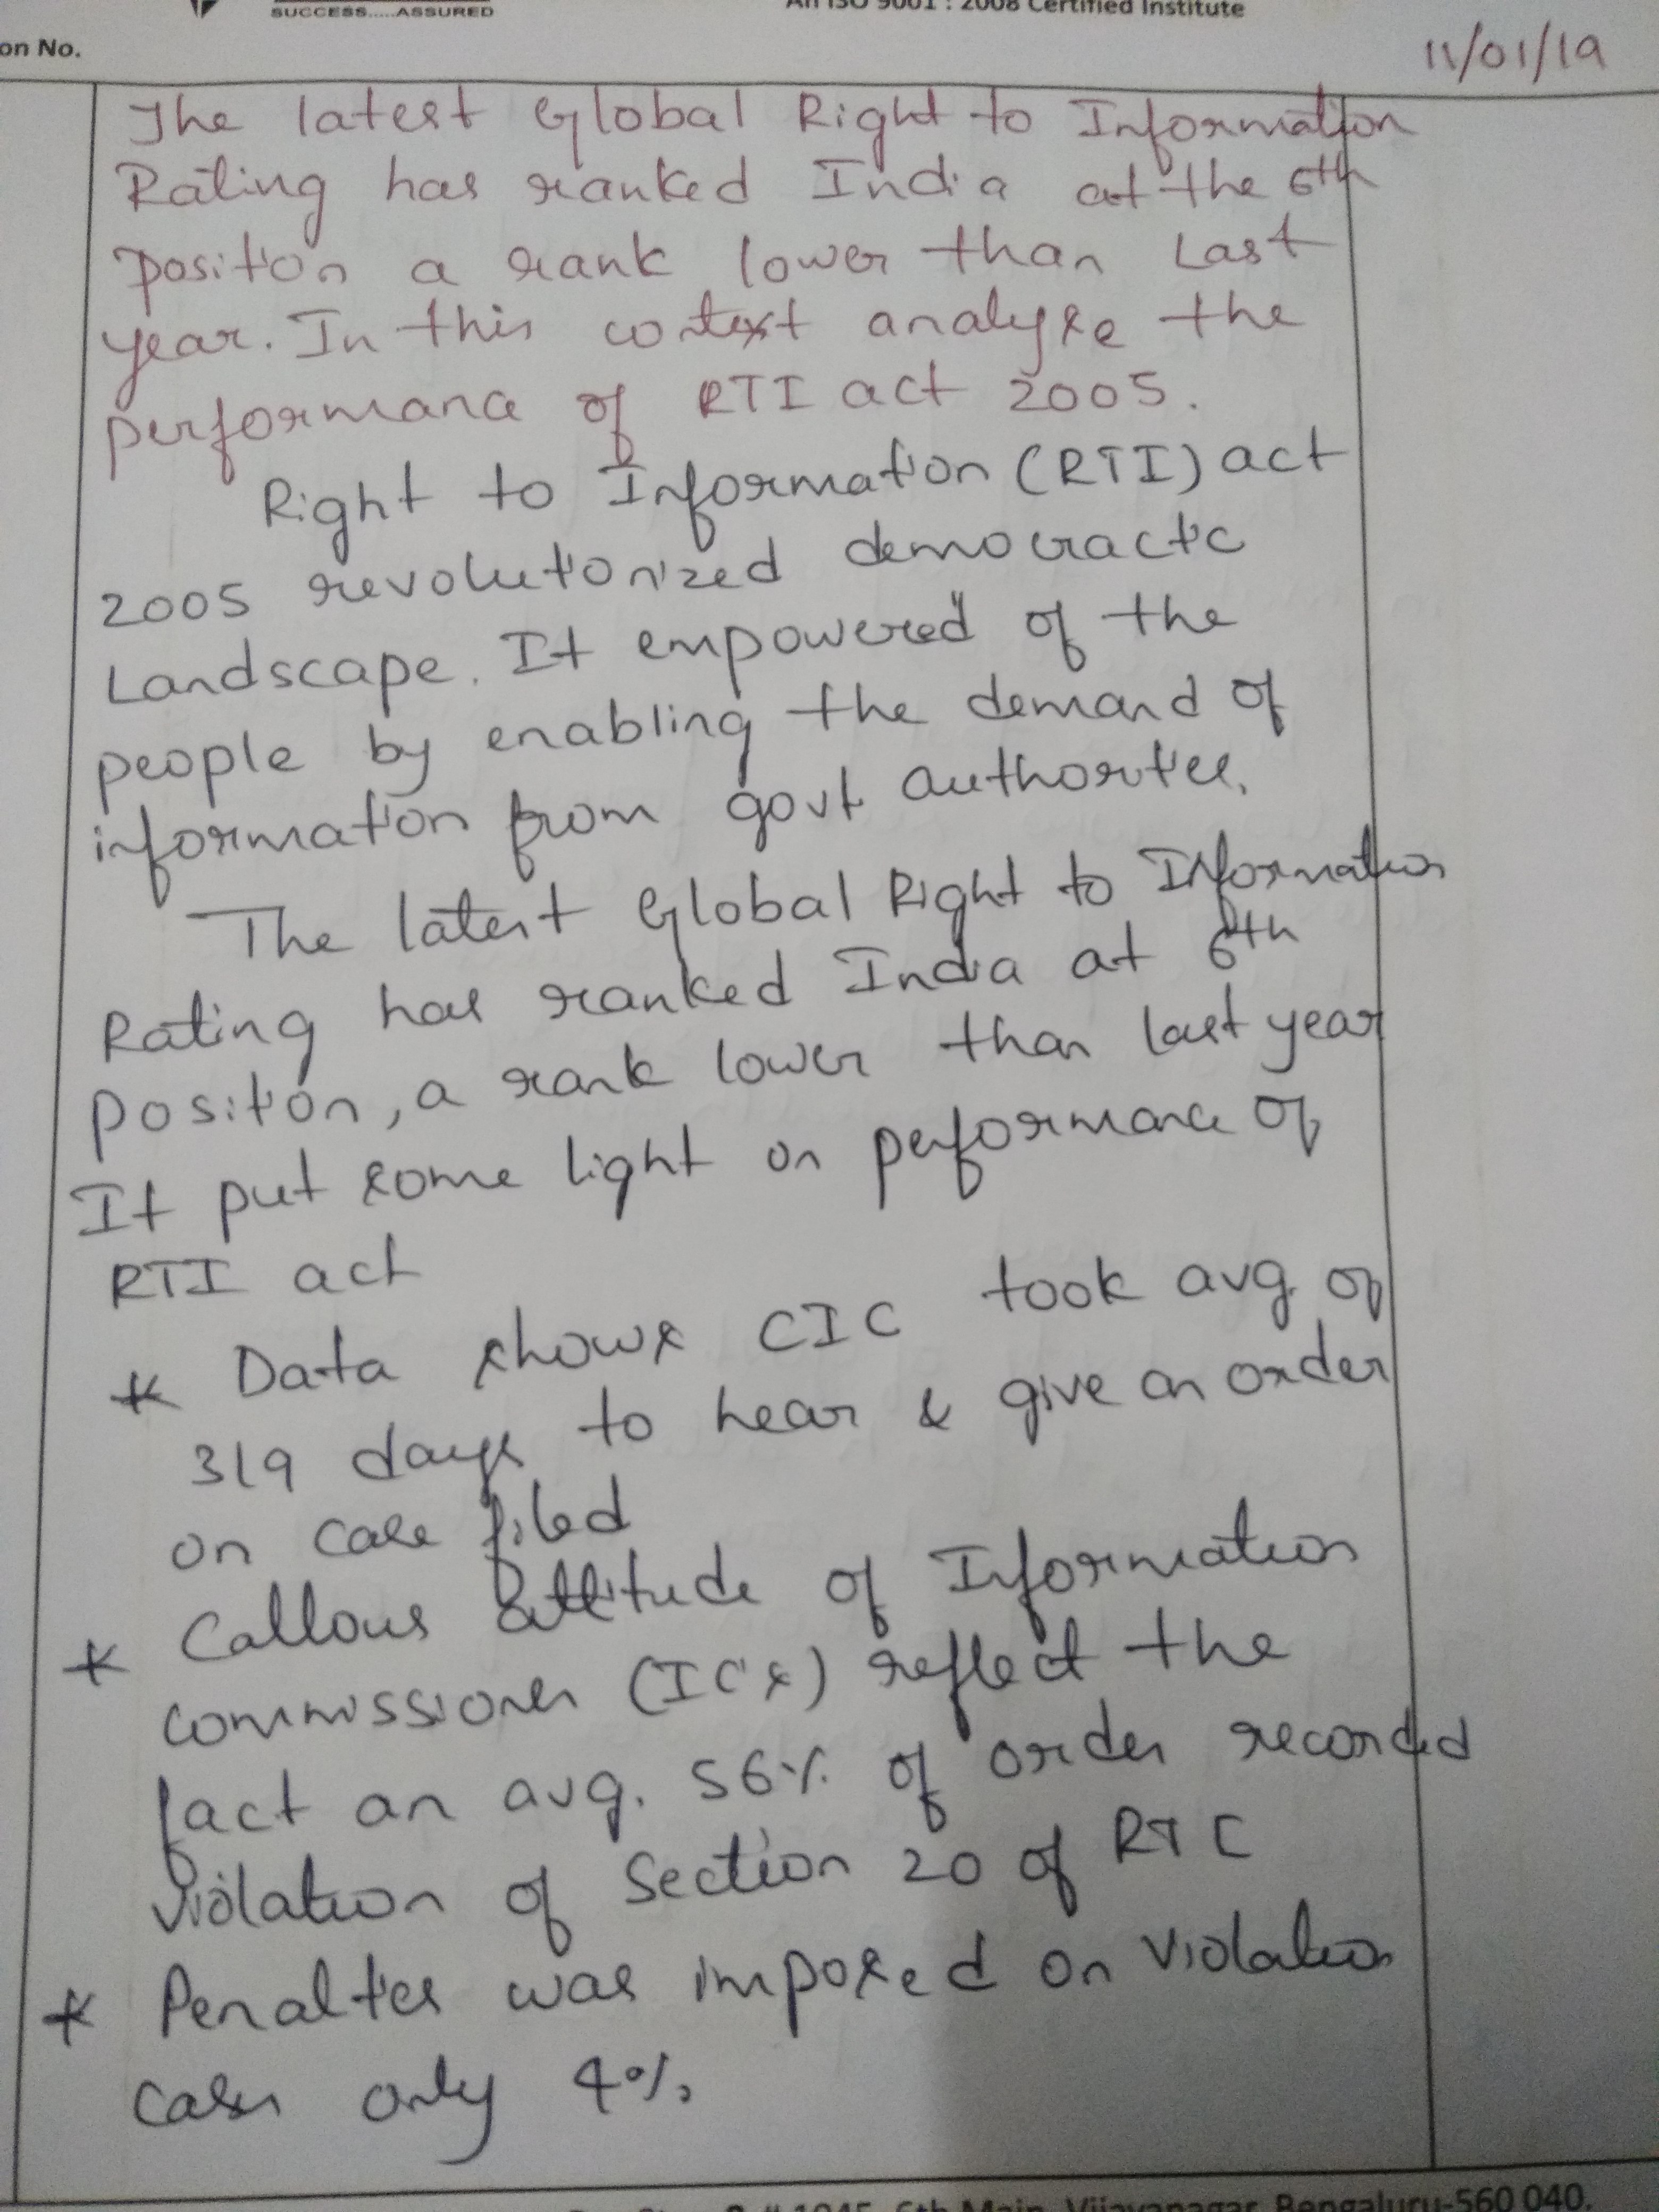 SUCCESS.....ASSURED
An ISO 9001 : 2008 Certified Institute
on No.
11/01/19
The latest Global Right to Information
Rating has ranked India at the 6th
position a rank lower than Last
year. In this context analyse the
performance of RTI act 2005.
Right to Information (RTI) act
2005 revolutionized democractic
Landscape. It empowered of the
people by enabling the demand of
information from govt authorities.
The latest Global Right to Information
Rating has ranked India at 6th
position, a rank lower than last year
It put some light on performance of
RTI act
* Data shows CIC took avg of
319 days to hear & give an order
on case filed
* Callous attitude of Information
commissioner (IC's) reflect the
fact an avg. 56% of order recorded
violation of Section 20 of RTI
* Penalties was imposed on violation
cases only 4%
6th Main, Vijayanagar, Bengaluru-560 040